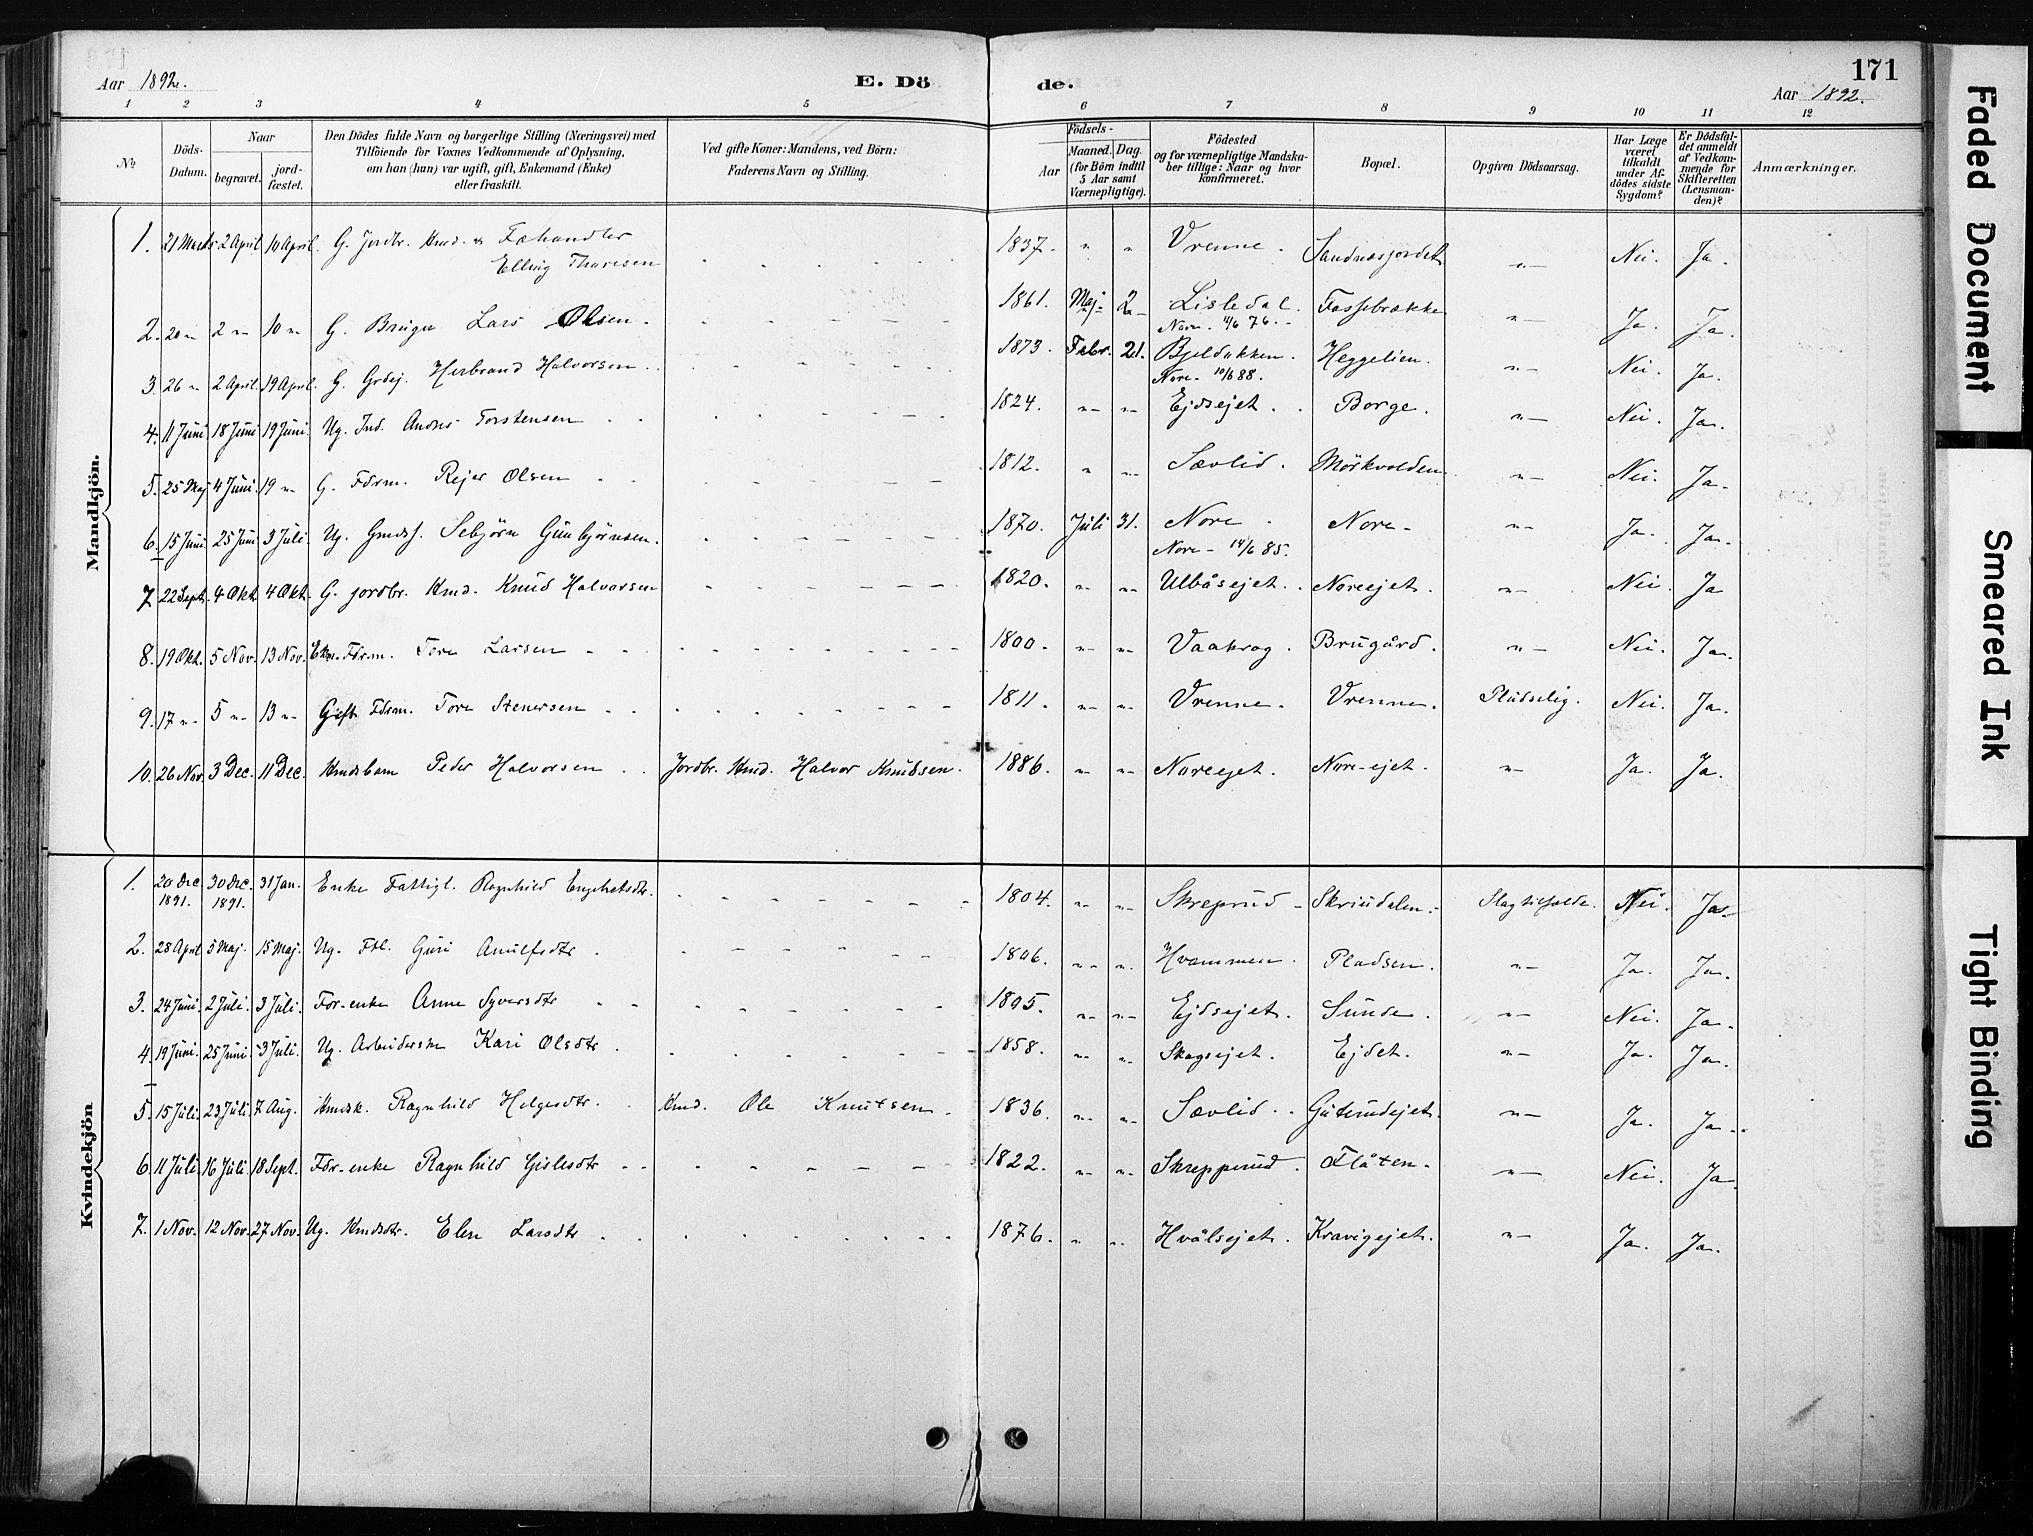 Aar 1892.
E. Dö
de.
171
Aar 1892.
1 2 3 4 5 6 7 8 9 10 11 12
No
Döds-Datum.
Naar
begravet.
jord-fæstet.
Den Dödes fulde Navn og borgerlige Stilling (Næringsvei) med
Tilföiende for Voxnes Vedkommende af Oplysning,
om han (hun) var ugift, gift, Enkemand (Enke)
eller fraskilt.
Ved gifte Koner: Mandens, ved Börn:
Faderens Navn og Stilling.
Födsels-
Aar
Maaned. Dag.
(for Börn indtil
5 Aar samt
Værnepligtige).
Födested
og for værnepligtige Mandska-
ber tillige: Naar og hvor
konfirmeret.
Bopæl.
Opgiven Dödsaarsag.
Har Læge
været
tilkaldt
under Af-
dödes sidste
Sygdom?
Er Dödsfal-
det anmeldt
af Vedkom-
mende for
Skifteretten
(Lensman-
den)?
Anmærkninger.
Mandkjön.
1. 21 Marts 2 April 10 April. G. Jordbr. Kmd. & Fæhandler Elling Thoresen 1837. " " Vrenne. Sandnæsjordet "— Nei. Ja.
2. 20 " 2 " 10 " G. Bruger Lars Olsen. 1861. Maj 2 Lisledal. Nore. 4/6 76. Fossebrække "— Ja. Ja.
3. 26 " 2 April. 19 April. G. Grdej. Herbrand Halvorsen. 1873. Febr. 21. Bjeldokken. Nore. 10/6 88. Heggelien. "— Nei. Ja.
4. 11 Juni 18 Juni 19 Juni. Ug. Ind. Andres Torstensen 1824. " " Ejdsejet. Borge. "— Nei. Ja.
5. 25 Maj 4 Juni. 19 " G. Fdrm. Rejer Olsen 1812. " " Sævlid. Mörkvolden "— Nei. Ja.
6. 15 Juni. 25 Juni 3 Juli. Ug. Gmdss. Sebjørn Gunbjørnsen. 1870. Juli 31. Nore Nore – 14/6 85. Nore "— Ja. Ja.
7 22 Sept. 4 Okt. 4 Okt. G. jordbr. Kmd. Knud Halvorsen 1820. " " Ulbåsejet. Noreejet. "— Nei. Ja
8. 19 Okt. 5 Nov. 13 Nov. Ekm. Fdrm. Tore Larsen 1800. " " Vaakrog. Brugård. "— Nei. Ja.
9. 17 " 5 " 13 " Gift Fdrm. Tore Stenersen 1811. " " Vrenne. Vrenne. Pludselig. Nei. Ja.
10. 26 Nov. 3 Dec. 11 Dec. Kmdsbarn Peder Halvorsen Jordbr. Kmd. Halvor Knudsen. 1886. " " Noreejet. Nore-ejet. "— Ja. Ja.
Kvindekjön
1. 20 Dec. 1891. 30 Dec. 1891. 31 Jan. Enke Fattigl. Ragnhild Engebretsdtr. 1804. " " Skreprud Skrindalen. Slagtilfælde. Nei. Ja.
2. 28 April 5 Maj. 15 Maj. Ug. Ftl. Guri Arnulfsdtr. 1806. " " Hvammen. Pladsen. "— Ja. Ja.
3. 24 Juni. 2 Juli. 3 Juli. Fdr-enke Anne Syversdtr 1805. " " Ejdsejet. Sunde. "— Nei. Ja.
4. 19 Juni. 25 Juni 3 Juli. Ug. Arbeiderske Kari Olsdtr. 1858. " " Skogsejet. Ejdet. "— Ja. Ja.
5. 15 Juli. 23 Juli. 7 Aug. Kmdsk. Ragnhild Helgesdtr. Kmd. Ole Knutsen 1836. " " Sævlid. Guterudejet. "— Ja. Ja.
6. 11 Juli 16 Juli. 18 Sept. Fdr-enke Ragnhild Gislesdtr 1822. " " Skrepperud. Flåten. "— Nei. Ja.
7. 1 Nov. 12 Nov. 27 Nov. Ug. Kmdsdtr. Elen Larsdtr 1876. " " Hvålsejet. Kravigejet. "— Ja. Ja.
Faded Document
Smeared Ink
Tight Binding